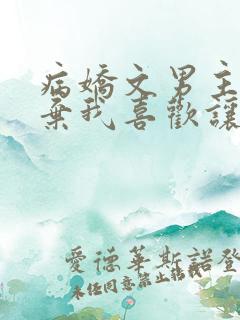 病嬌文男主
棄我喜歡讓
愛德華斯諾登
未經同意禁止轉載